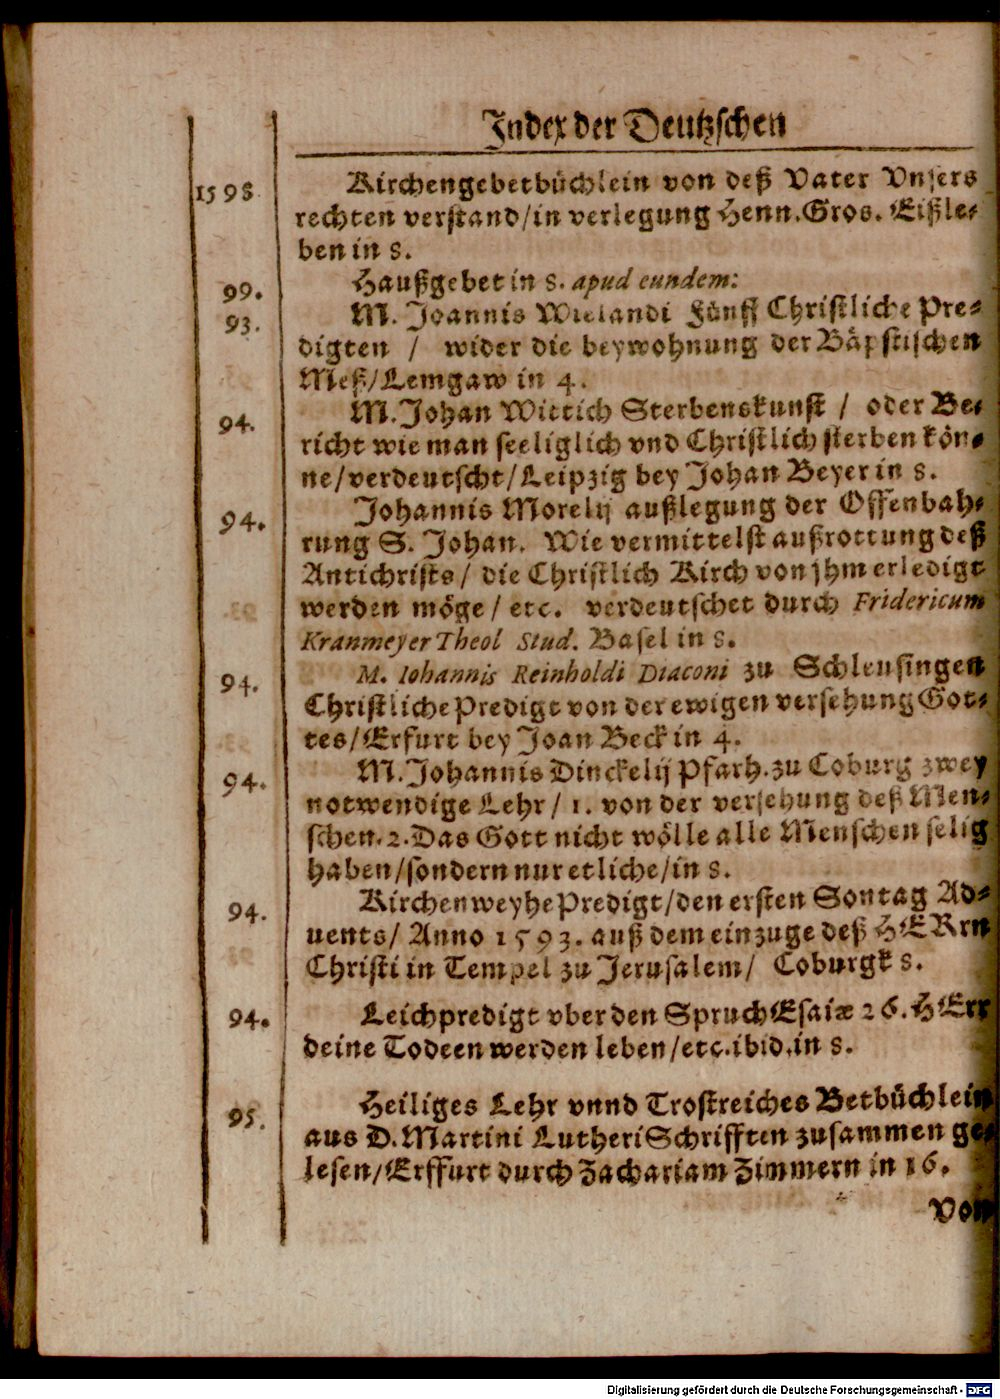 Index der Deutzschen
1598. Kirchengebetbüchlein von deß Vater Vnsers
rechten verstand/in verlegung Henn.Gros. Eißle-
ben in 8.
99. Haußgebet in 8. apud eundem:
93. M. Joannis Wielandi Fünff Christliche Pre-
digten / wider die beywohnung der Bäpstischen
Meß/Lemgaw in 4.
94. M.Johan Wittich Sterbenskunst / oder Be-
richt wie man seeliglich vnd Christlich sterben kön-
ne/verdeutscht/Leipzig bey Johan Beyer in 8.
94. Johannis Morelij außlegung der Offenbah-
rung S. Johan. Wie vermittelst außrottung deß
Antichrists/ die Christlich Kirch von jhm erledigt
werden möge/ etc. verdeutschet durch Fridericum
Kranmeyer Theol Stud. Basel in 8.
94. M. Iohannis Reinholdi Diaconi zu Schleusingen
Christliche Predigt von der ewigen versehung Got-
tes/Erfurt bey Joan Beck in 4.
94. M.Johannis Dinckelij Pfarh.zu Coburg zwey
notwendige Lehr/ 1. von der versehung deß Men-
schen.2.Das Gott nicht wölle alle Menschen selig
haben/sondern nur etliche/in 8.
94. Kirchenweyhe Predigt/den ersten Sontag Ad-
uents/ Anno 1593. auß dem einzuge deß HERrn
Christi in Tempel zu Jerusalem/ Coburgk 8.
94. Leichpredigt vber den Spruch Esaiæ 26. HErr
deine Todeen werden leben/etc.ibid.in 8.
95. Heiliges Lehr vnnd Trostreiches Betbüchlein
aus D.Martini Lutheri Schrifften zusammen ge-
lesen/Erffurt durch Zachariam Zimmern in 16.
Von
Digitalisierung gefördert durch die Deutsche Forschungsgemeinschaft - DFG